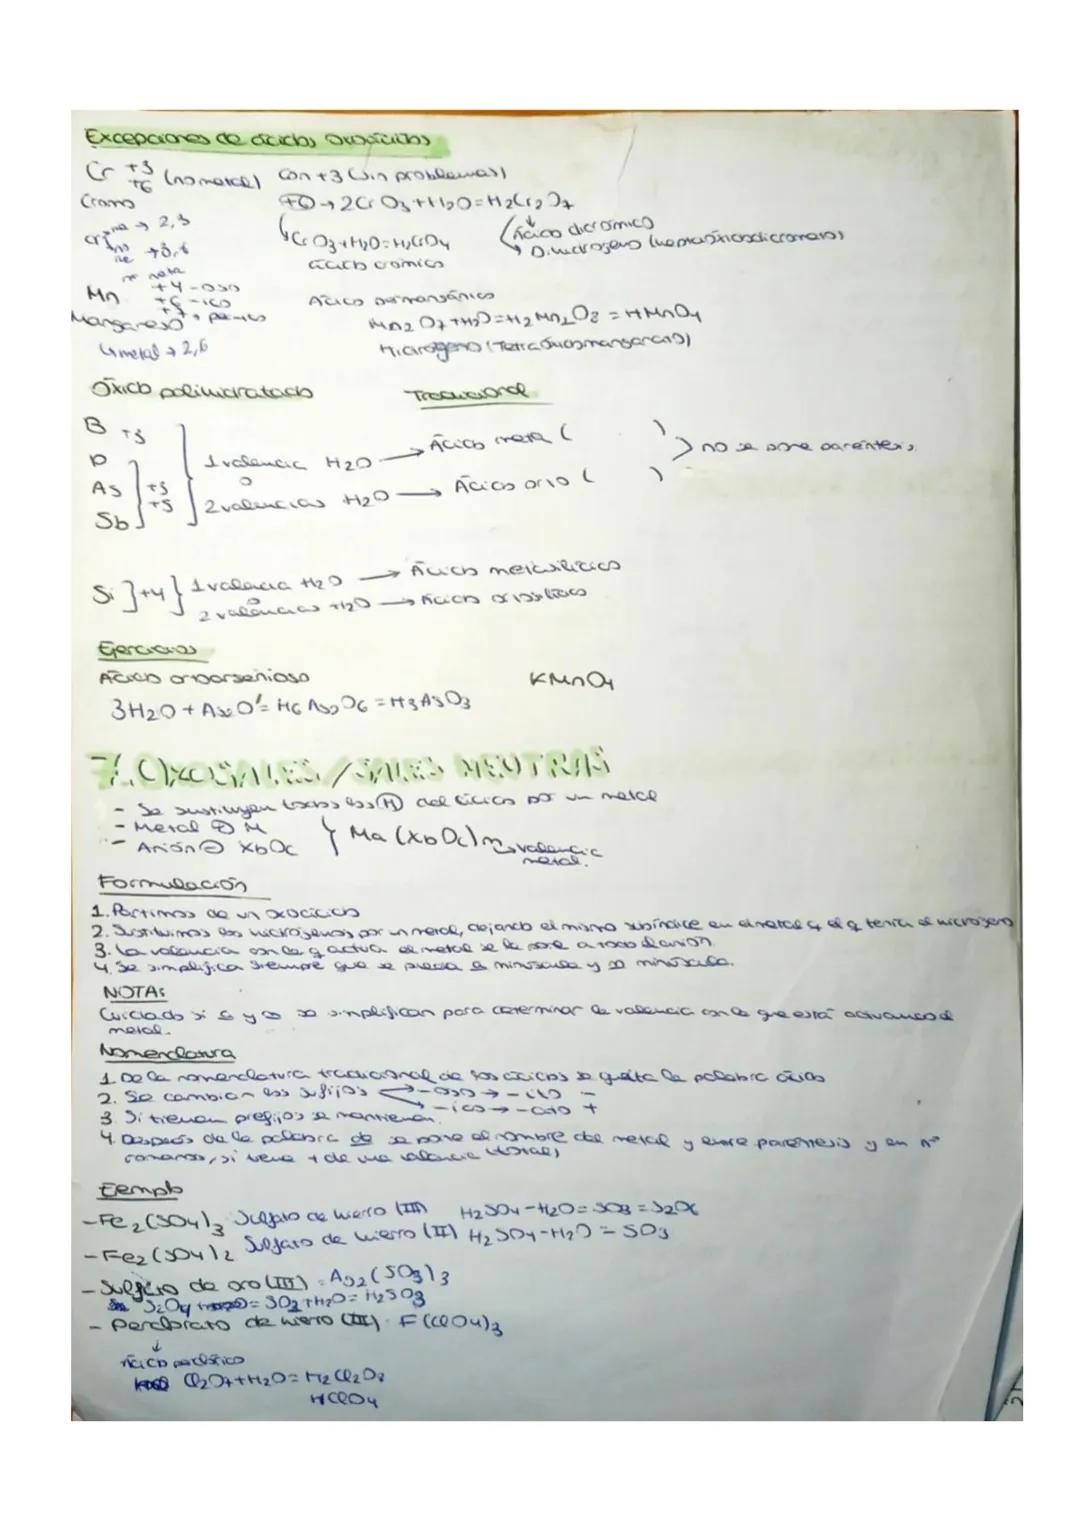 Excepciones de ácidos oxoácidos
Cr +3 +6 (no metal) Con +3 (sin problemas)
Cromo +6 → 2CrO3+H2O=H2Cr2O7
→ 2,3 Ácido dicrómico
CrO3+H2O=H2CrO4
ácido crómico
+4 -oso
Mn +6 -ico Ácido permangánico
Manganeso +7 → per-ico Mn2O7+H2O=H2Mn2O8=HMnO4
↳ metal → 2,6
Óxido polihidratado Tradicional
B +3
P 1 valencia H2O → Ácido meta ( ) no se pone paréntesis
As +3 +5 o
Sb 2 valencias H2O → Ácido orto ( )
Si ] +4 } 1 valencia H2O → Ácido metasilícico
o
2 valencias H2O → Ácido ortosilícico
Ejercicios
Ácido ortoarsenioso KMnO4
3H2O + As2O3= H6As2O6 = H3AsO3
7. OXOSALES/SALES NEUTRAS
- Se sustituyen todos los (H) del ácido por un metal
- Metal ⊕ M
- Anión ⊖ XbOc } Ma (XbOc)m → valencia metal.
Formulación
1. Partimos de un oxoácido
2. Sustituimos los hidrógenos por un metal, dejando el mismo subíndice en el metal q el q tenía el hidrógeno
3. La valencia con la q actua el metal se la pone a todo el anión.
4. Se simplifica siempre que se pueda
NOTA:
Cuidado si se simplifican para determinar la valencia con la que está actuando el
metal.
Nomenclatura
1. De la nomenclatura tradicional de los ácidos se quita la palabra ácido
2. Se cambian los sufijos -oso → -ito -
-ico → -ato +
3. Si tienen prefijos se mantienen.
4. Después de la palabra de se pone el nombre del metal y entre paréntesis y en nº
romanos, si tiene + de una valencia
Ejemplo
- Fe2(SO4)3 Sulfato de hierro (III) H2SO4-H2O=SO3
- Fe2(SO4)2 Sulfato de hierro (II) H2SO4-H2O=SO3
- Sulfito de oro (III) = (SO3)3
SO2+H2O=H2SO3
- Perclorato de hierro (III) F(ClO4)3
↓
Ácido perclórico
Cl2O7+H2O=H2Cl2O8
HClO4